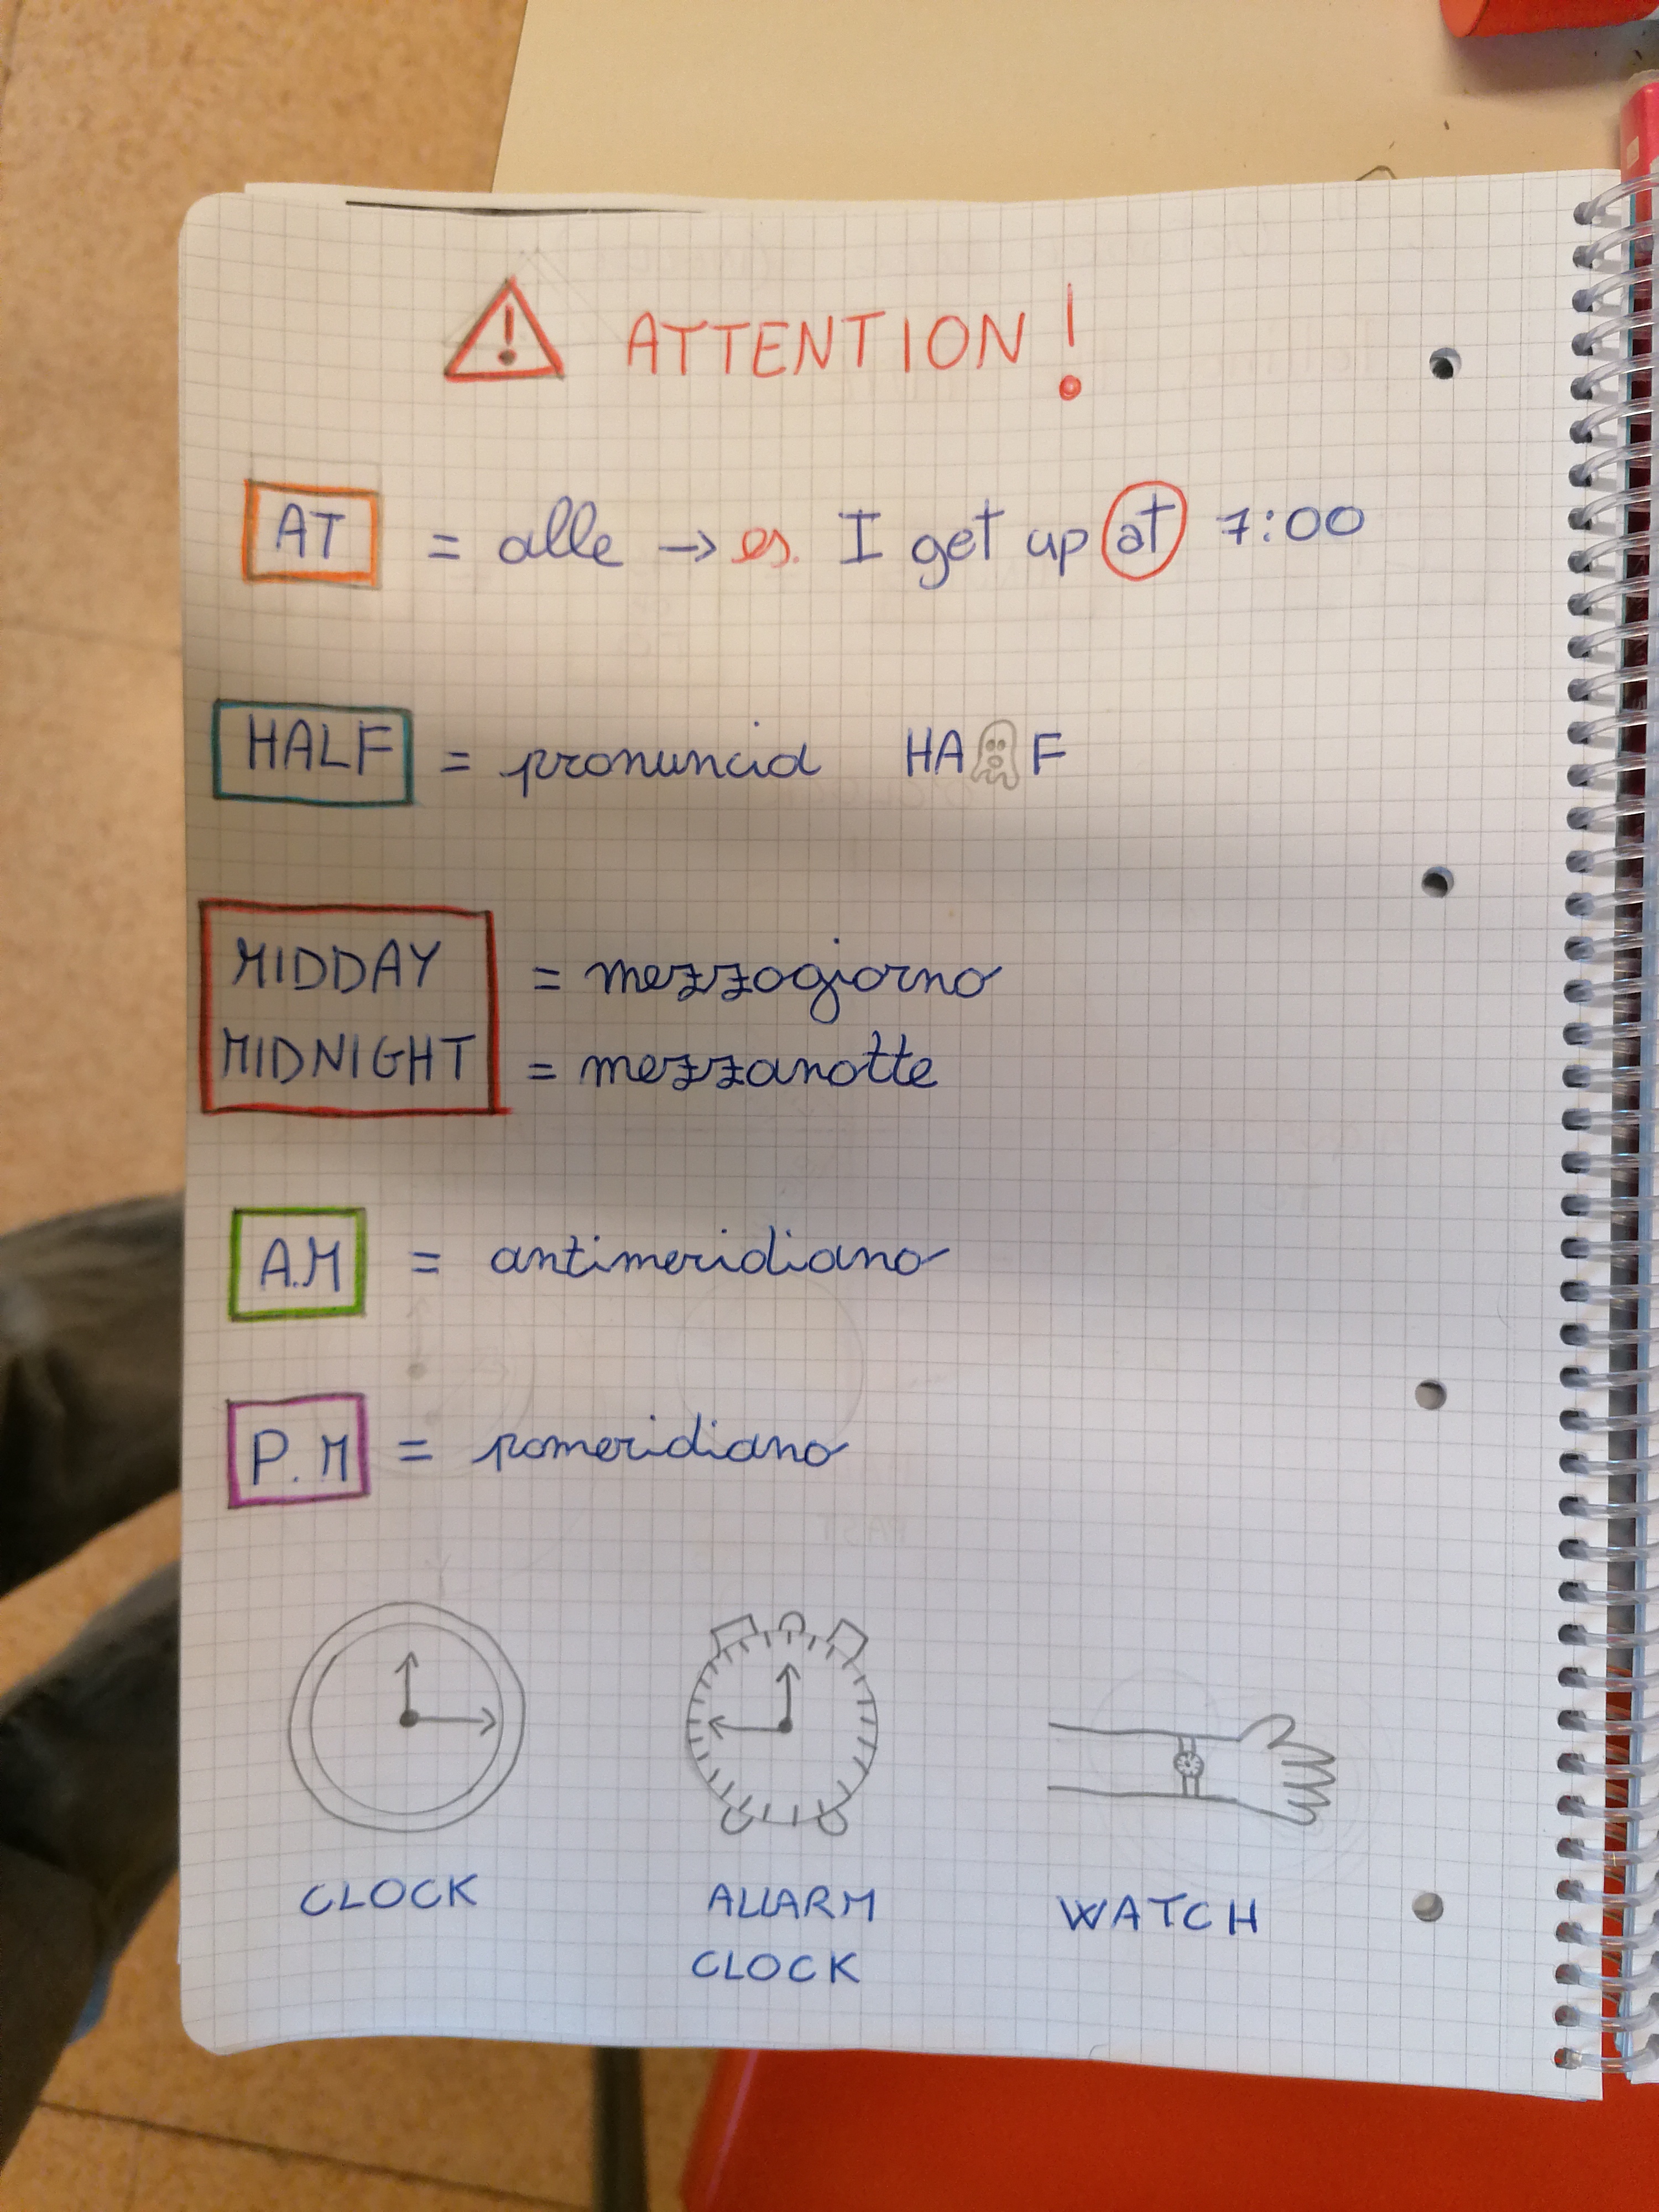 ! ATTENTION!
AT = alle → es. I get up at 7:00
HALF = pronuncia HA F
MIDDAY = mezzogiorno
MIDNIGHT = mezzanotte
A.M = antimeridiano
P.M = pomeridiano
CLOCK ALLARM WATCH
CLOCK